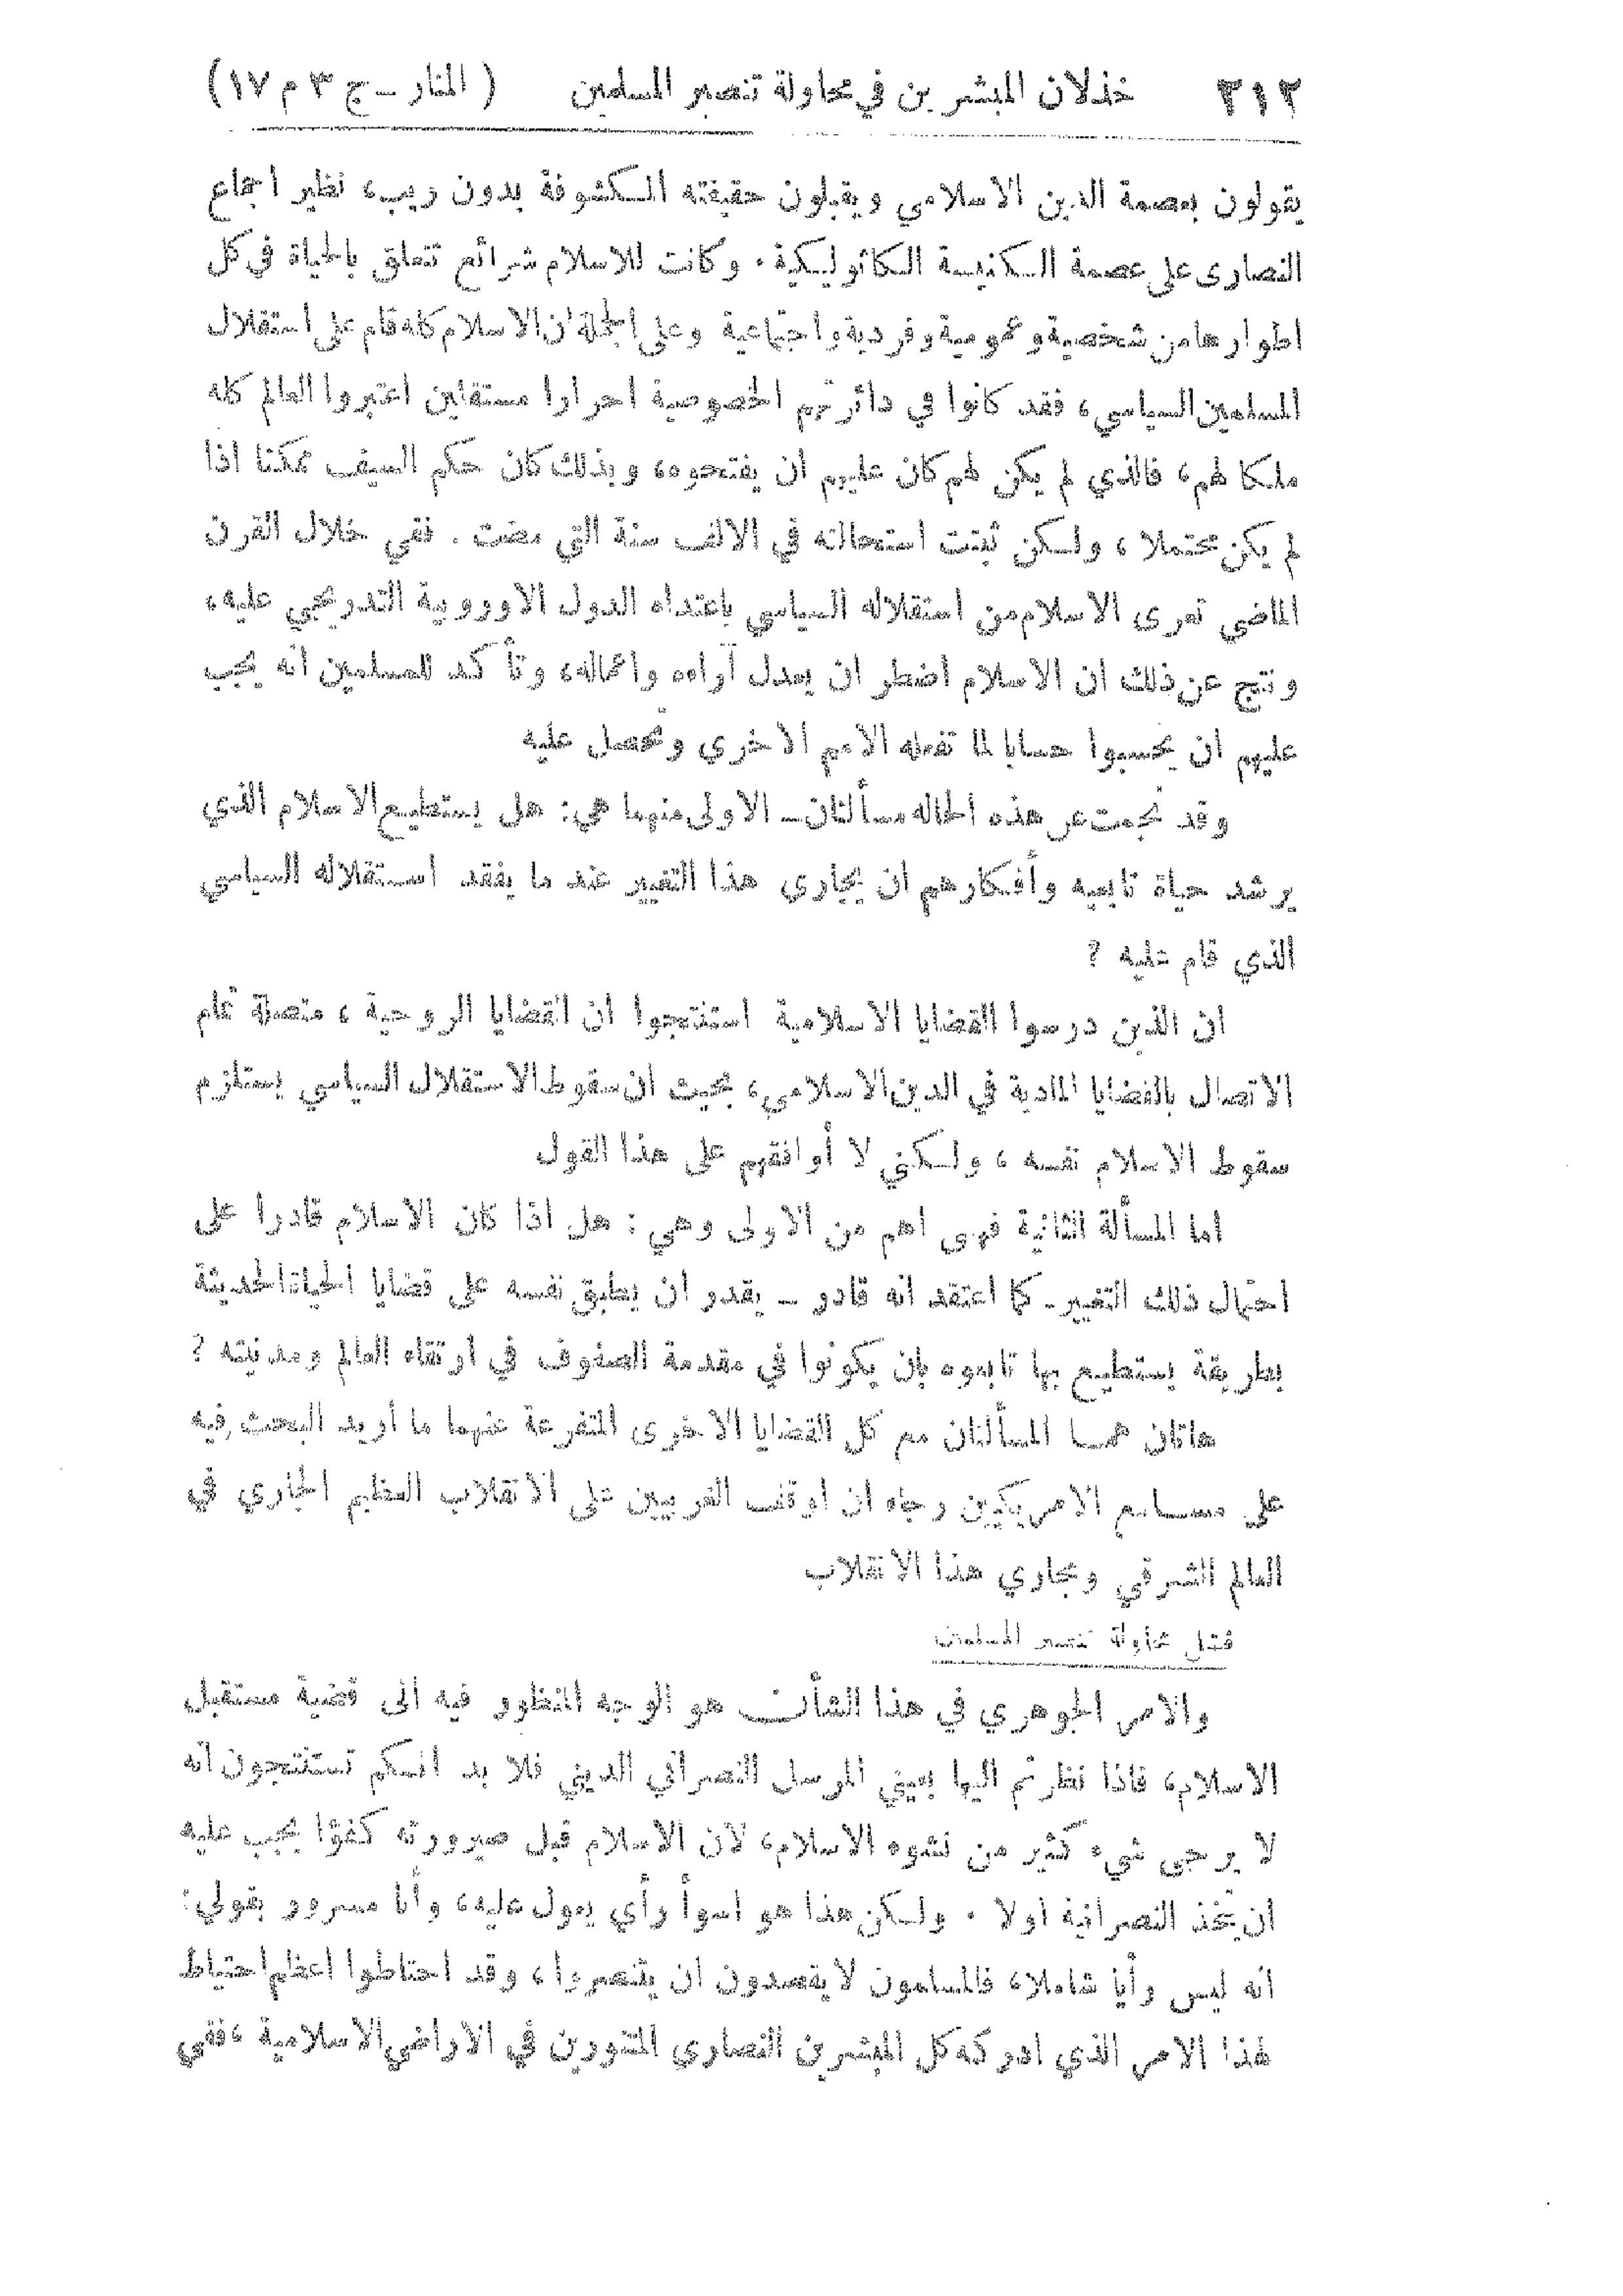 ٢١٢ خذلان المبشرين في محاولة تنصير المسلمين ( المنار ــ ج ٣ م ١٧)
يقولون بعصمة الدين الاسلامي ويقبلون حقيقته المكشوفة بدون ريب، نظير اجماع
النصارى على عصمة الكنيسة الكاثوليكية . وكانت للاسلام شرائع تتعلق بالحياة في كل
اطوارها من شخصية وعمومية وفردية واجتماعية وعلى الجملة ان الاسلام كله قام على استقلال
المسلمين السياسي، فقد كانوا في دائرتهم الخصوصية احرارا مستقلين اعتبروا العالم كله
ملكا لهم، فالذي لم يكن لهم كان عليهم ان يفتحوه، وبذلك كان حكم السيف ممكنا اذا
لم يكن محتملا ، ولكن ثبتت استحالته في الالف سنة التي مضت . ففي خلال القرن
الماضي تعرى الاسلام من استقلاله السياسي باعتداء الدول الاوروبية التدريجي عليه،
ونتج عن ذلك ان الاسلام اضطر ان يعدل آراءه واعماله، وتأكد للمسلمين انه يجب
عليهم ان يحسبوا حسابا لما تفعله الامم الاخرى وتحصل عليه
وقد نجمت عن هذه الحاله مسألتان ــ الاولى منهما هي: هل يستطيع الاسلام الذي
يرشد حياة تابعيه وأفكارهم ان يجاري هذا التغيير عند ما يفقد استقلاله السياسي
الذي قام عليه ?
ان الذين درسوا القضايا الاسلامية استنتجوا ان القضايا الروحية ، متصلة تمام
الاتصال بالقضايا المادية في الدين الاسلامي، بحيث ان سقوط الاستقلال السياسي يستلزم
سقوط الاسلام نفسه ، ولكني لا أوافقهم على هذا القول
اما المسألة الثانية فهي اهم من الاولى وهي : هل اذا كان الاسلام قادرا على
احتمال ذلك التغيير ـ كما اعتقد انه قادر ــ يقدر ان يطبق نفسه على قضايا الحياة الحديثة
بطريقة يستطيع بها تابعوه بان يكونوا في مقدمة الصفوف في ارتقاء العالم ومدنيته ?
هاتان هما المسألتان مع كل القضايا الاخرى المتفرعة عنهما ما أريد البحث فيه
على مسامع الامريكيين رجاء ان اوقف الغربيين على الانقلاب العظيم الجاري في
العالم الشرقي ومجاري هذا الانقلاب
فشل محاولة تنصير المسلمين
والامر الجوهري في هذا الشأن هو الوجه المنظور فيه الى قضية مستقبل
الاسلام، فاذا نظرتم اليها بعيني المرسل النصراني الديني فلا بد انكم تستنتجون انه
لا يرجى شيء كثير من نشوء الاسلام، لان الاسلام قبل صيرورته كفؤا يجب عليه
ان يتخذ النصرانية اولا . ولكن هذا هو اسوأ رأي يعول عليه، وأنا مسرور بقولي:
انه ليس رأيا شاملا، فالمسلمون لا يقصدون ان يتنصروا، وقد احتاطوا اعظم احتياط
لهذا الامر الذي ادركه كل المبشرين النصارى المتنورين في الاراضي الاسلامية ، ففي